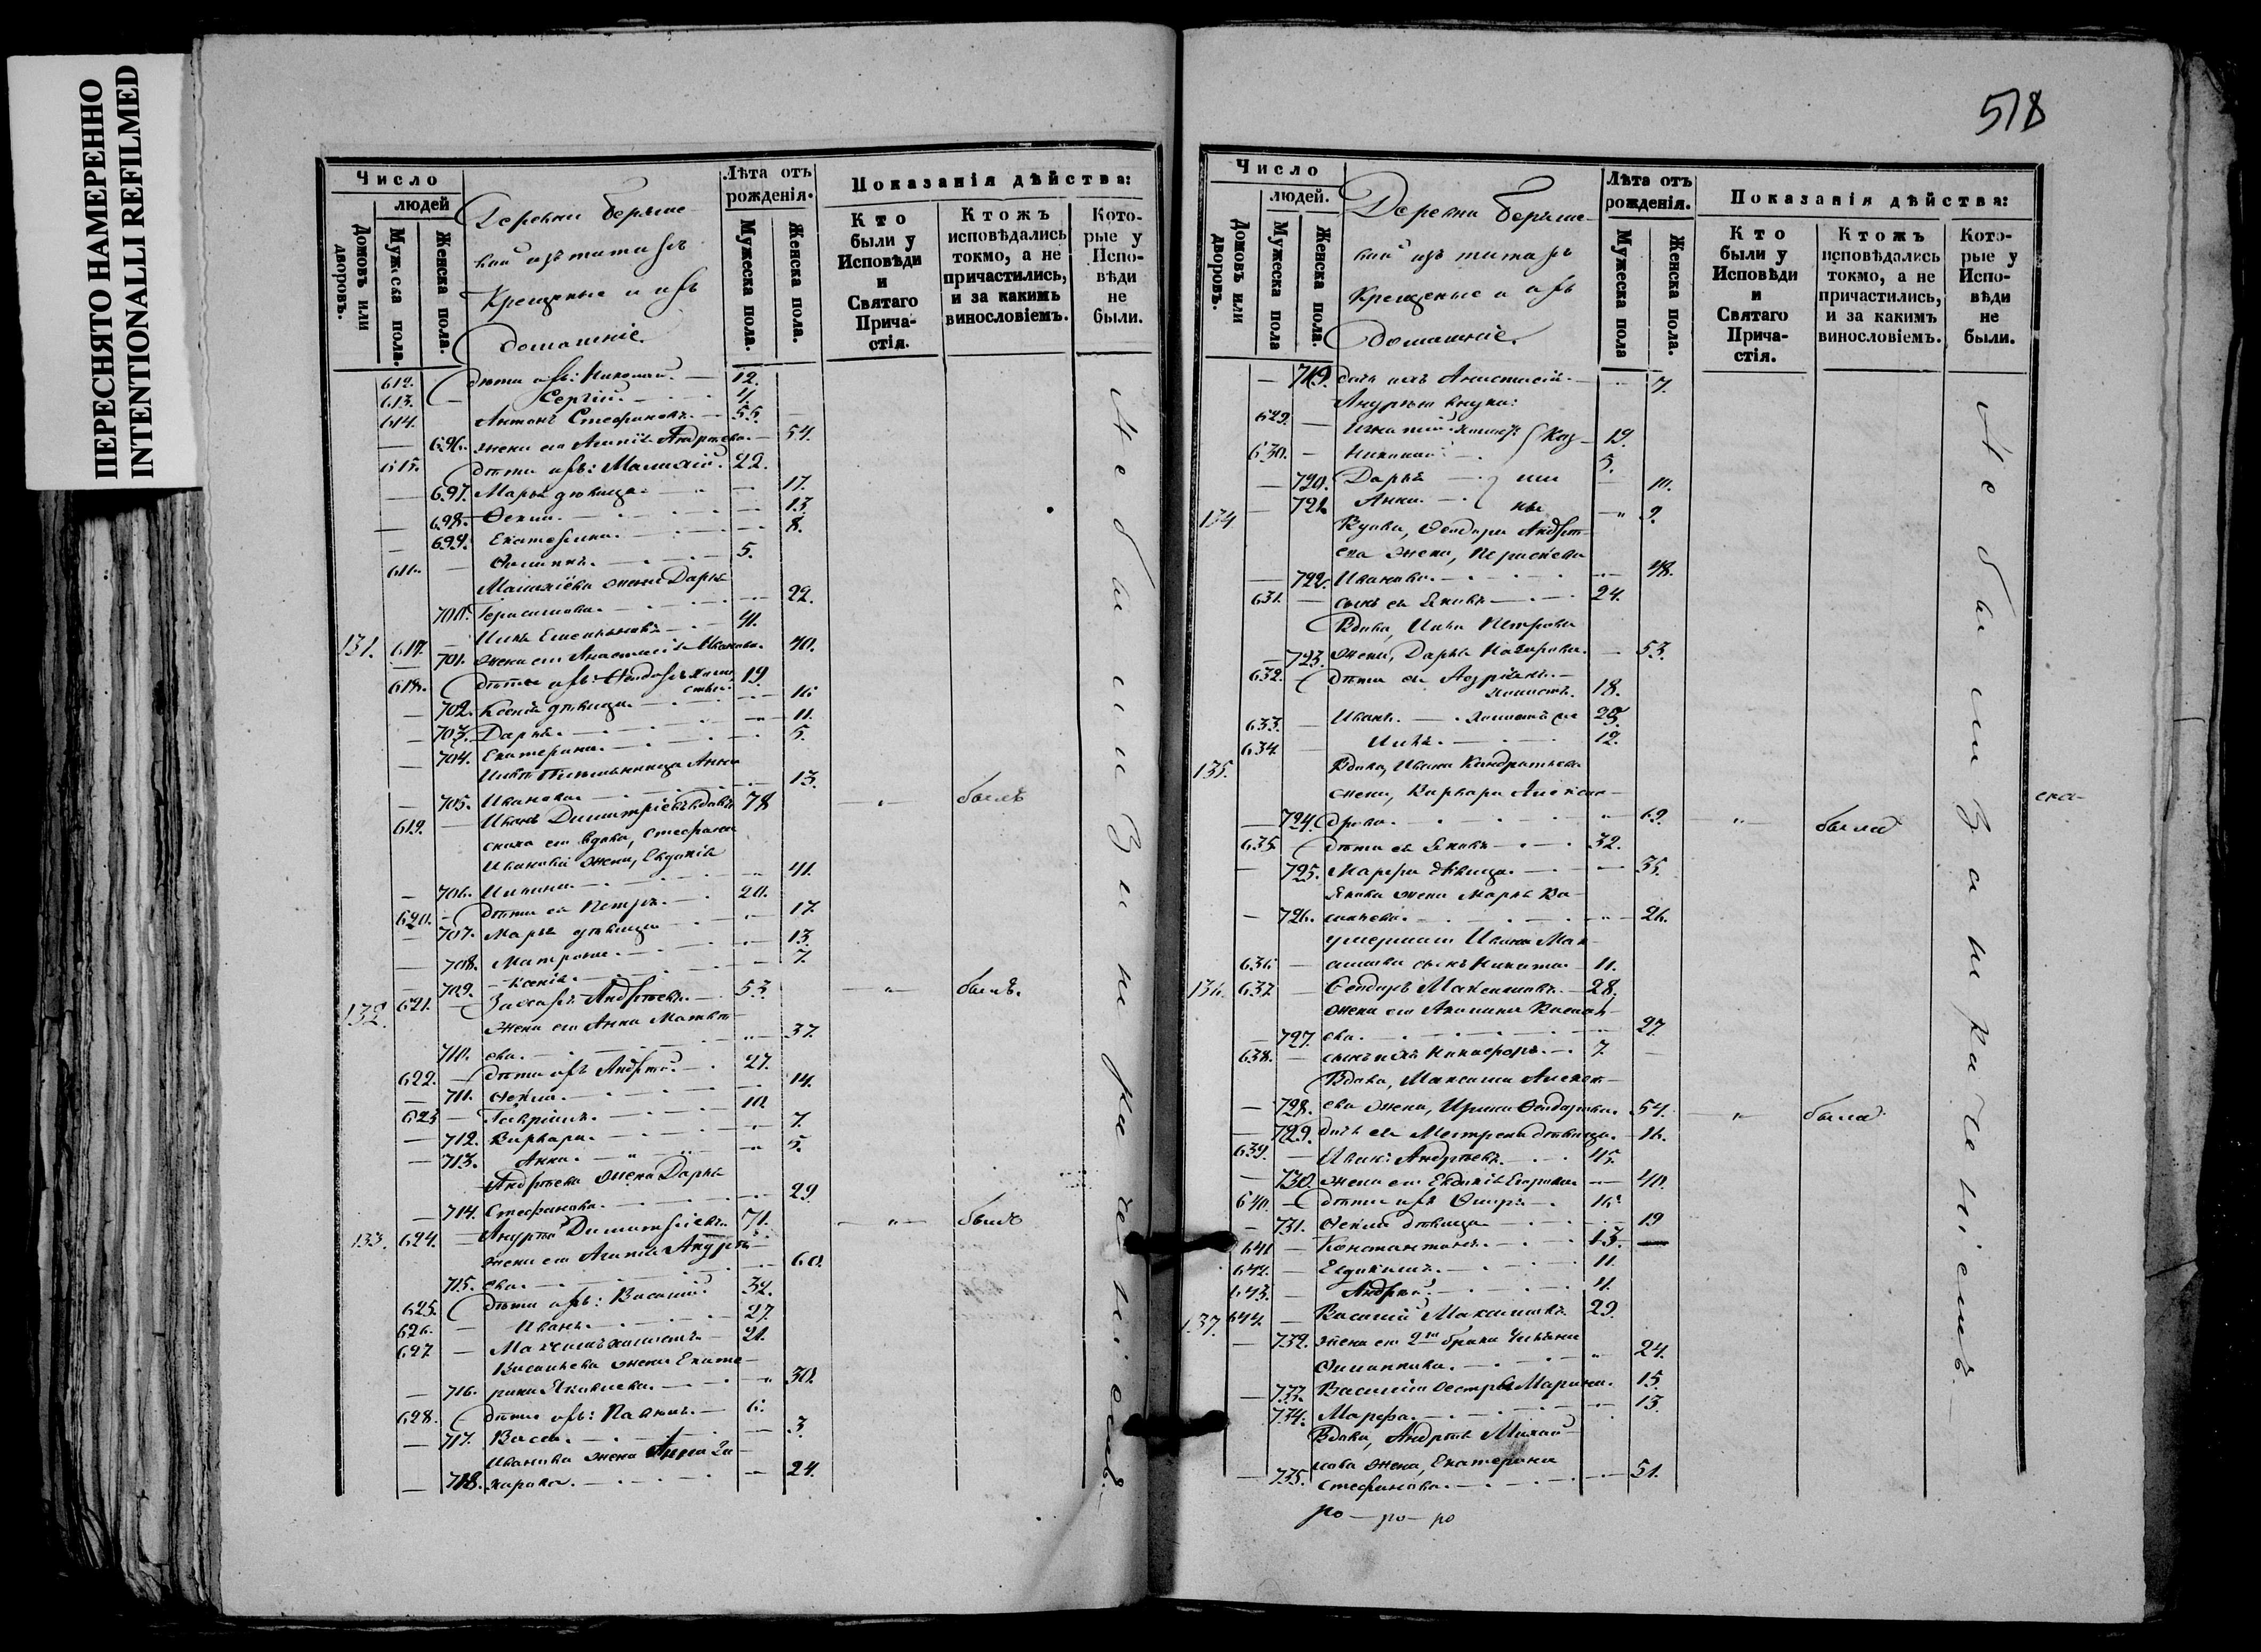 ПЕРЕСНЯТО НАМЕРЕННО
INTENTIONALLI REFILMED
518
Число
людей
Домовъ или дворовъ.
Мужеска пола.
Женска пола.
Лѣта отъ рожденія.
Мужеска пола.
Женска пола.
Показанія дѣйства:
Кто были у Исповѣди и Святаго Причастія.
Ктожъ исповѣдались токмо, а не причастились, и за какимъ винословіемъ.
Которые у Исповѣди не были.
Крещеные и ихъ
домашніе.
612. дѣти ихъ: Николай. 12.
613. Сергій. 4.
614. Антонъ Стефановъ. 55.
696. жена его Андреева. 54.
615. дѣти ихъ: 22.
697. Марья дѣвица 17.
698. Фекла. 13.
699. Екатерина. 8.
616. 5.
жена Дарья
700. Герасимова. 22.
131. 617. 41.
701. жена его Анастасія Иванова. 40.
618. дѣти ихъ: 19.
702. Ксенія дѣвица 16.
703. Дарья. 11.
704. Екатерина. 5.
Анна
705. Иванова 13.
619. Иванъ Димитріевъ вдовъ 78 былъ
вдова, Стефана
Иванова жена, Евдокія
706. 41.
620. дѣти ея Петръ. 20.
707. Марья дѣвица 17.
708. Матрона. 13.
709. Ксенія. 7.
132. 621. Захаръ Андреевъ. 53. былъ.
жена его Анна Матвѣ-
710. ева. 37.
622. дѣти ихъ Андрей. 27.
711. Фекла. 14.
623 Гавріилъ. 10.
712. Варвара. 7.
713. Анна. 5.
Андреева жена Дарья
714. Стефанова. 29.
133. 624. Андрей Димитріевъ. 71. былъ
жена его Агафья Андре-
715. ева. 60.
625. дѣти ихъ: Василій. 32.
626. Иванъ. 27.
627 Максимъ 21.
Васильева жена Екате-
716. рина Яковлева. 30.
628. дѣти ихъ: Павелъ. 6.
717. Васса. 3.
Иванова жена Анна За-
718. харова. 24.
Не были за нераченіемъ.
Число
людей.
Домовъ или дворовъ.
Мужеска пола
Женска пола.
Лѣта отъ рожденія.
Мужеска пола
Женска пола.
Показанія дѣйства:
Кто были у Исповѣди и Святаго Причастія.
Ктожъ исповѣдались токмо, а не причастились, и за какимъ винословіемъ.
Которые у Исповѣди не были.
Крещеные и ихъ
домашніе.
719. дочь ихъ Анастасія. 7.
Андрея внуки:
629. 19.
630. Николай. 5.
720. Дарья 10.
721. Анна. 9.
134 Вдова, Феодора Андре-
ева жена, Параскева
722. Иванова. 48.
631. сынъ ея Яковъ 24.
Вдова, Петрова
723. жена, Дарья Назарова. 53.
632. дѣти ея 18.
633. Иванъ. 25.
634. 12.
135. Вдова, Ивана Кондратьева
жена, Варвара Алексан-
724. дрова. 69. была
635 дѣти ея Яковъ 32.
725. Марфа дѣвица. 35.
Якова жена Марья Ва-
726. сильева. 26.
умершаго Ивана Мак-
636 симова сынъ Никита 11.
136. 637 Феодоръ Максимовъ 28.
жена его Акилина
727. ева. 27.
638. сынъ ихъ Никифоръ. 7.
Вдова, Максима Алексѣ-
728. ева жена, Ирина Феодорова. 54. была
729. дочь ея Матрена дѣвица. 16.
639. Иванъ Андреевъ. 45.
730. жена его Евдокія 40.
640. дѣти ихъ 16.
731. Фекла дѣвица 19
641 Константинъ. 13.
642. Евдокимъ. 11.
643. Андрей. 4.
137. 644. Василій Максимовъ. 29.
732. жена его 2го брака Ульяна
Филиппова. 24.
733. Василія сестры Марина. 15.
734. Марфа. 13.
Вдова, Андрея Михай-
лова жена, Екатерина
735. Стефанова. 51.
Не были за нераченіемъ.